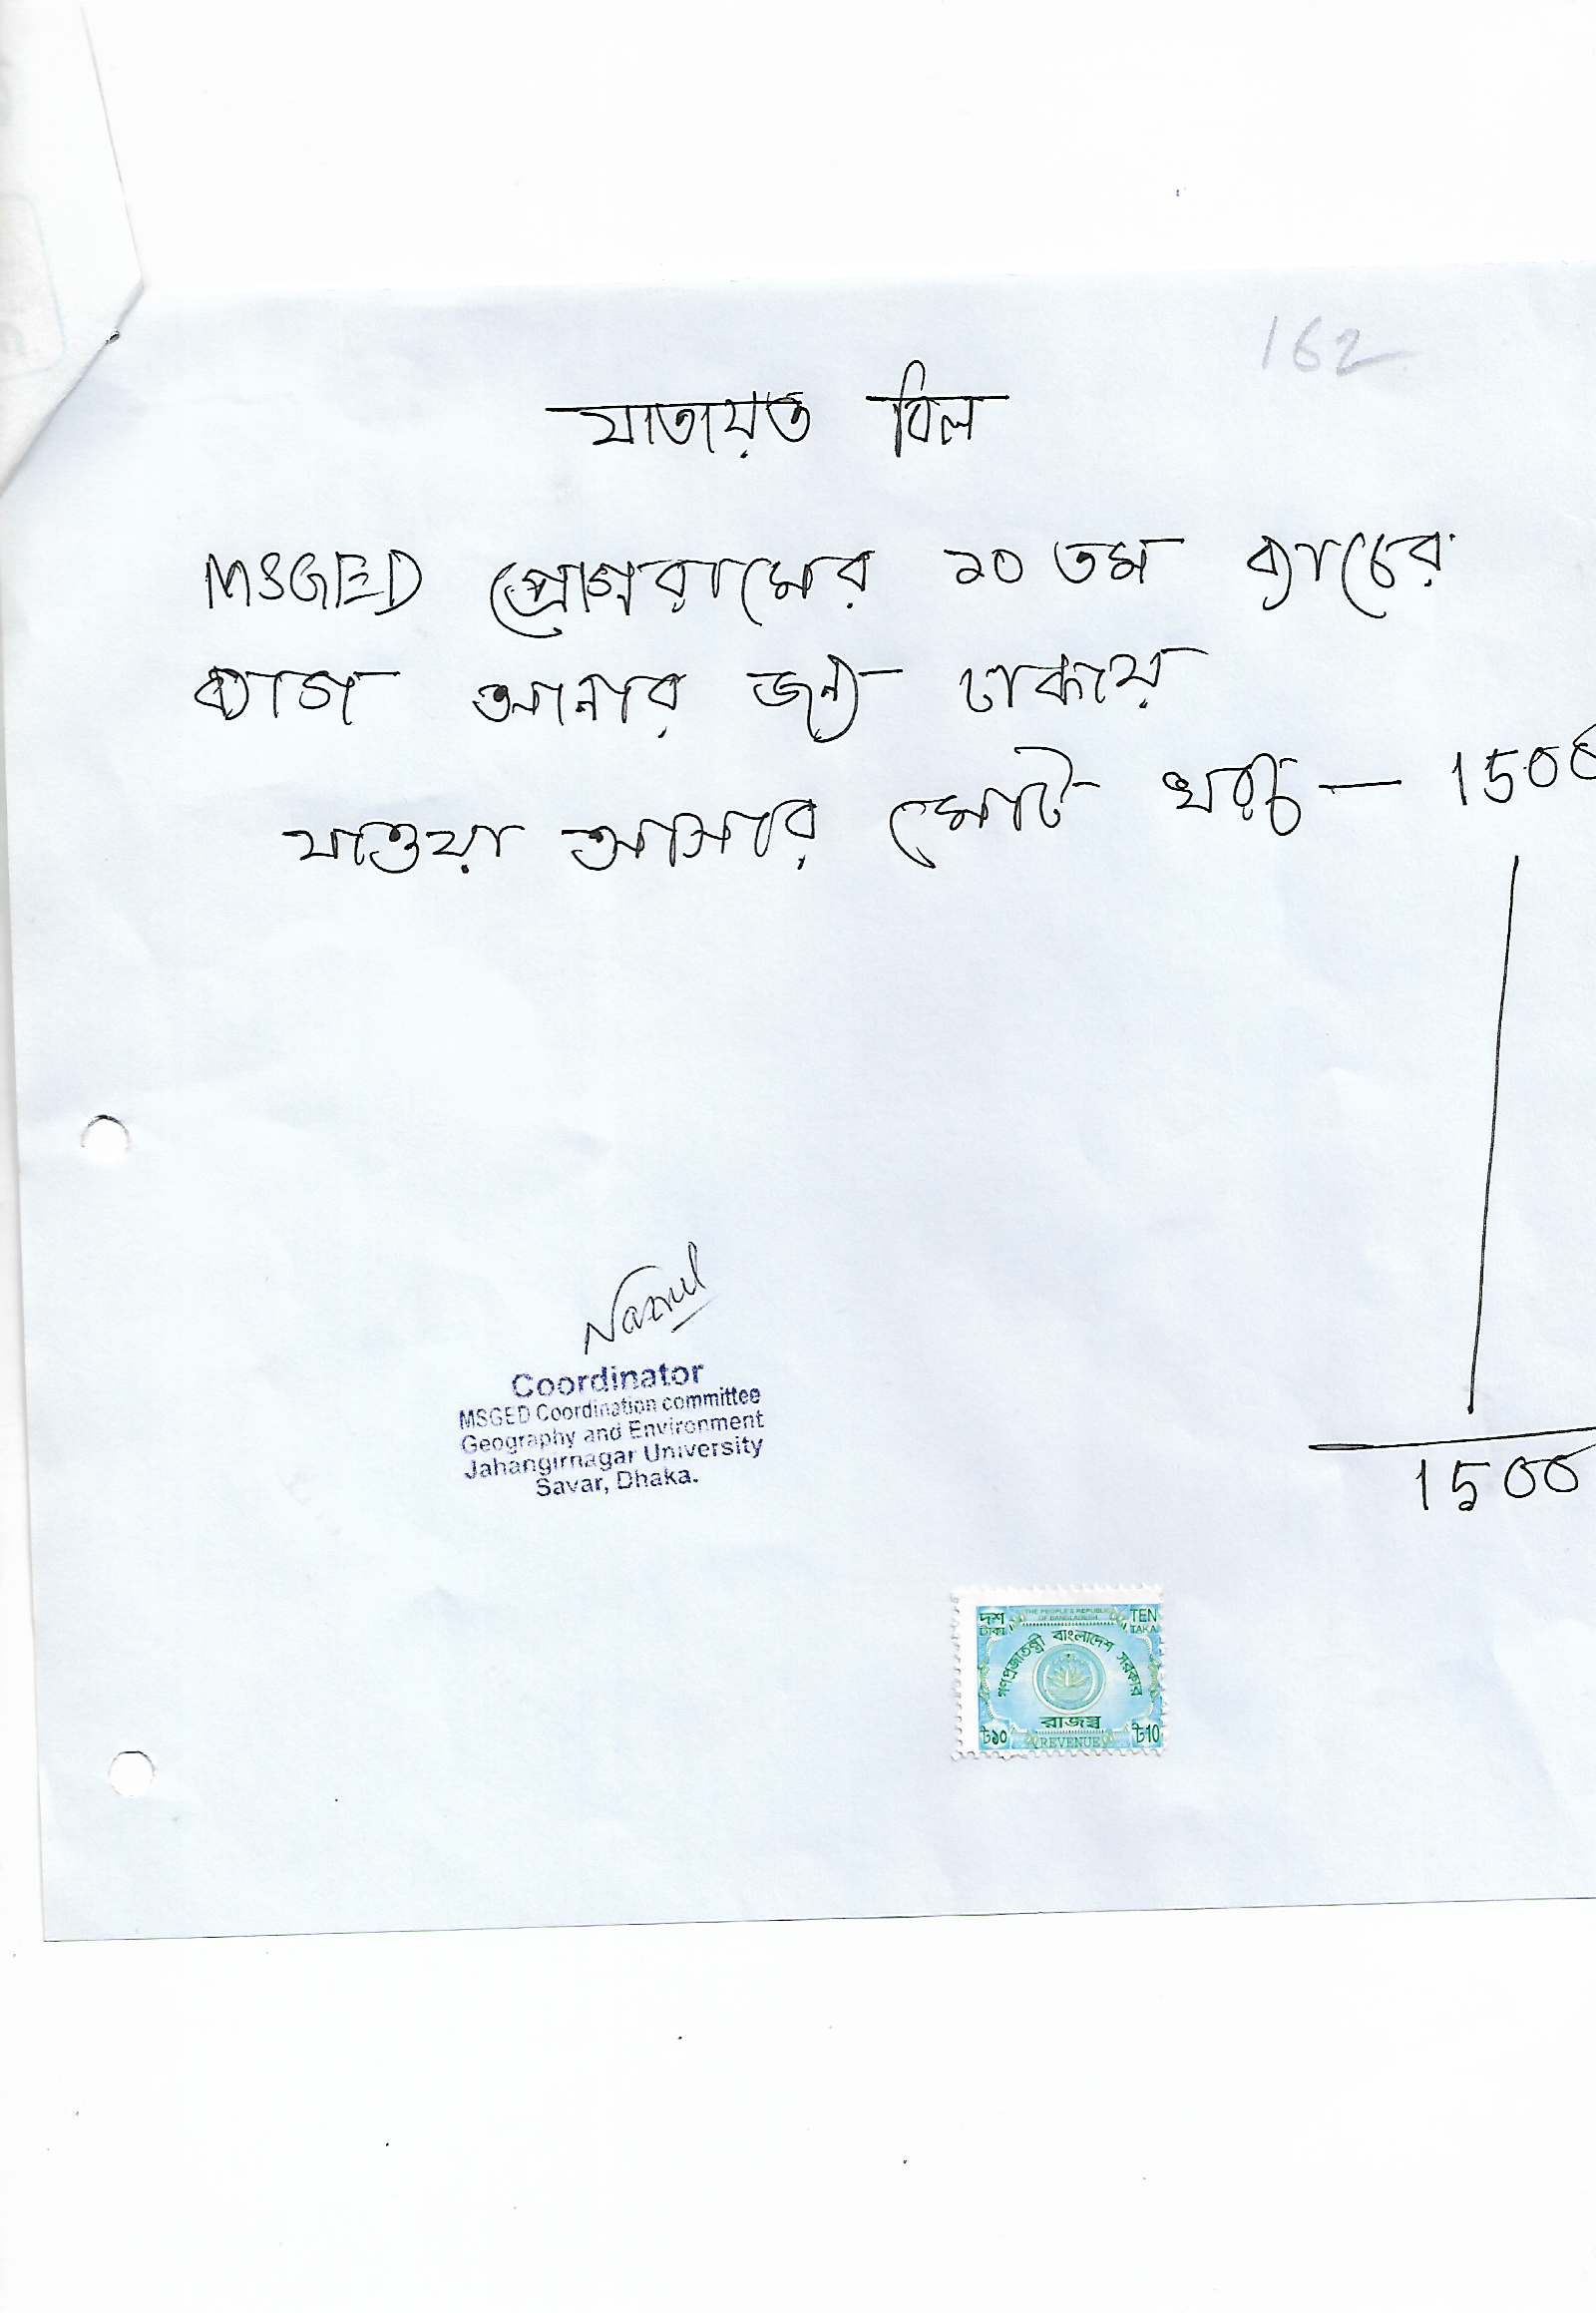 162
যাতায়ত বিল
MSGED প্রোগ্রামের ১০ তম ব্যাচের
ব্যাগ আনার জন্য ঢাকায়
যাওয়া আসার মোট খরচ — 1500
1500
Nazrul
Coordinator
MSGED Coordination committee
Geography and Environment
Jahangirnagar University
Savar, Dhaka.
দশ টাকা THE PEOPLE'S REPUBLIC OF BANGLADESH TEN TAKA
গণপ্রজাতন্ত্রী বাংলাদেশ সরকার
রাজস্ব
৳১০ REVENUE ৳10